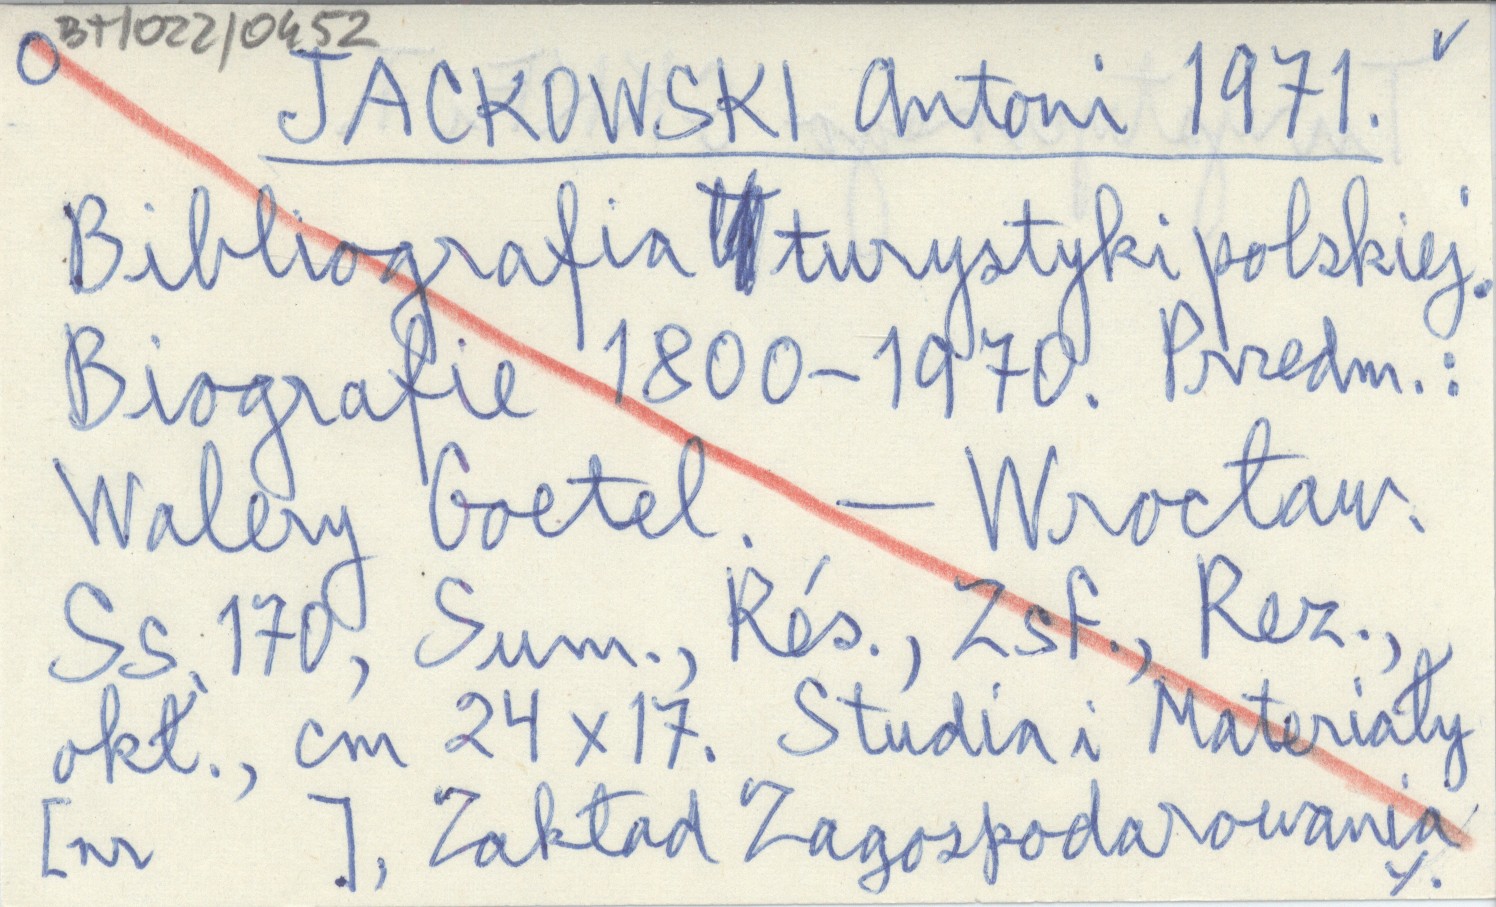 BT/022/0452
JACKOWSKI Antoni 1971.
Bibliografia turystyki polskiej.
Biografie 1800–1970. Przedm.:
Walery Goetel. — Wrocław.
Ss. 170, Sum., Rés., Zsf., Rez.,
okł., cm 24 x 17. Studia i Materiały
[nr ], Zakład Zagospodarowania